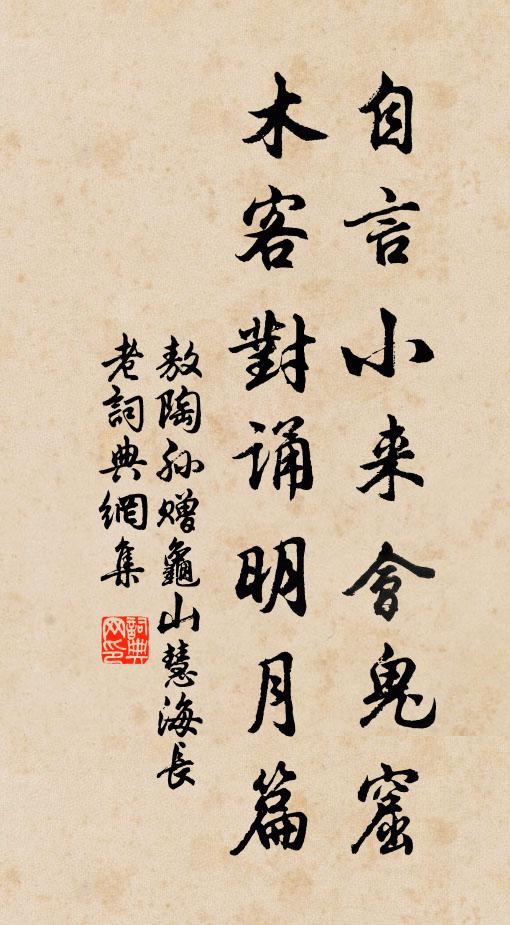 自言小来會鬼窟
木客對诵明月篇
敖陶孙贈龜山慧海長
老詞典網集
詞典网印